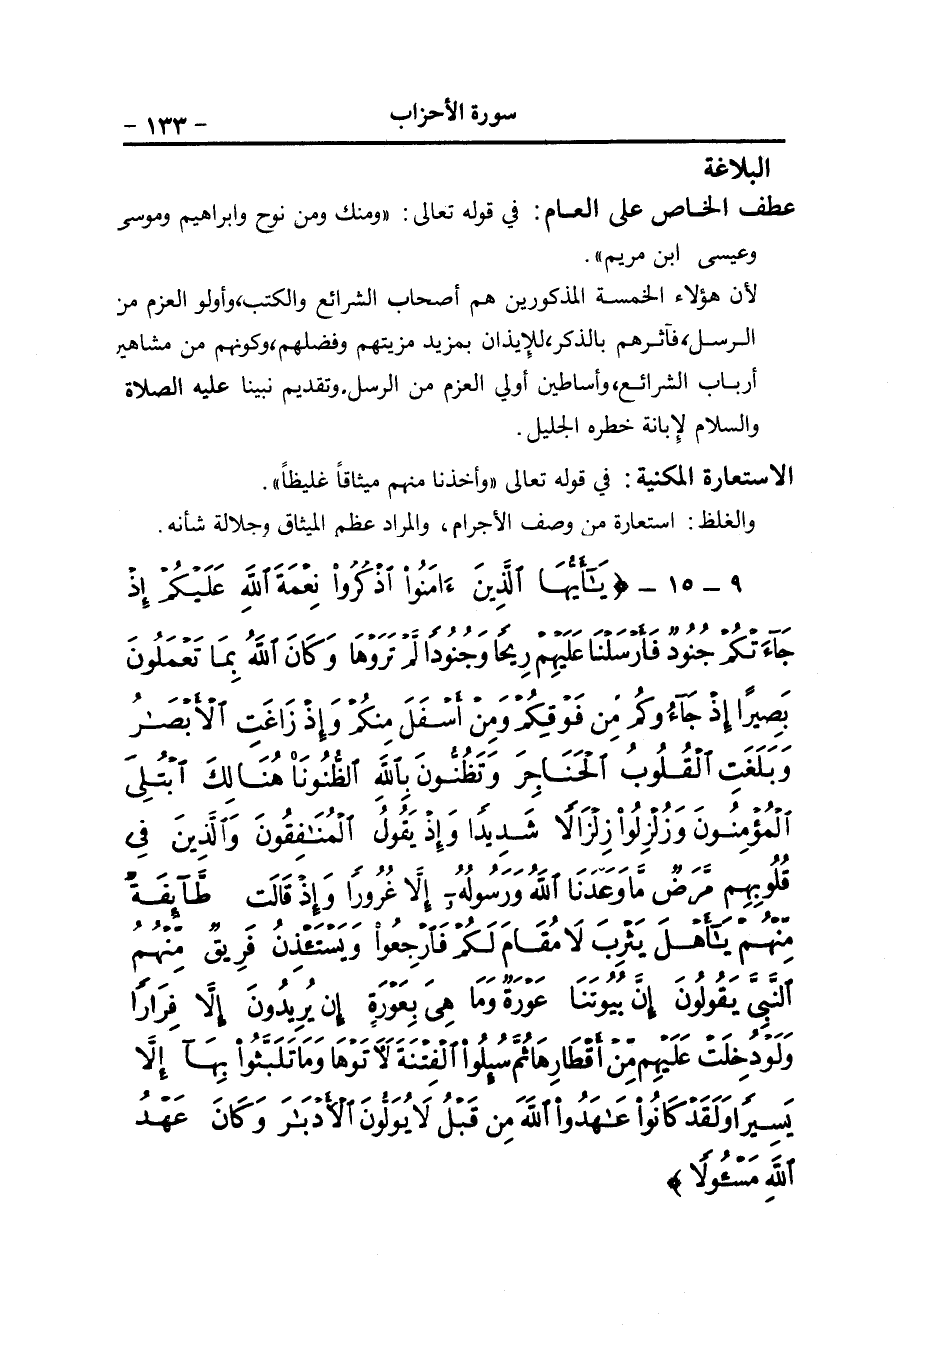 سورة الأحزاب
- ١٣٣ -
البلاغة
عطف الخاص على العام: في قوله تعالى: «ومنك ومن نوح وابراهيم وموسى
وعيسى ابن مريم».
لأن هؤلاء الخمسة المذكورين هم أصحاب الشرائع والكتب،وأولو العزم من
الرسل،فآثرهم بالذكر،للإيذان بمزيد مزيتهم وفضلهم،وكونهم من مشاهير
أرباب الشرائع،وأساطين أولي العزم من الرسل.وتقديم نبينا عليه الصلاة
والسلام لإبانة خطره الجليل.
الاستعارة المكنية: في قوله تعالى «وأخذنا منهم ميثاقاً غليظاً».
والغلظ: استعارة من وصف الأجرام، والمراد عظم الميثاق وجلالة شأنه.
٩ - ١٥ - ﴿يَٰٓأَيُّهَا ٱلَّذِينَ ءَامَنُوا۟ ٱذْكُرُوا۟ نِعْمَةَ ٱللَّهِ عَلَيْكُمْ إِذْ
جَآءَتْكُمْ جُنُودٌ فَأَرْسَلْنَا عَلَيْهِمْ رِيحًا وَجُنُودًا لَّمْ تَرَوْهَا وَكَانَ ٱللَّهُ بِمَا تَعْمَلُونَ
بَصِيرًا إِذْ جَآءُوكُم مِّن فَوْقِكُمْ وَمِنْ أَسْفَلَ مِنكُمْ وَإِذْ زَاغَتِ ٱلْأَبْصَٰرُ
وَبَلَغَتِ ٱلْقُلُوبُ ٱلْحَنَاجِرَ وَتَظُنُّونَ بِٱللَّهِ ٱلظُّنُونَا۠ هُنَالِكَ ٱبْتُلِىَ
ٱلْمُؤْمِنُونَ وَزُلْزِلُوا۟ زِلْزَالًا شَدِيدًا وَإِذْ يَقُولُ ٱلْمُنَٰفِقُونَ وَٱلَّذِينَ فِى
قُلُوبِهِم مَّرَضٌ مَّا وَعَدَنَا ٱللَّهُ وَرَسُولُهُۥٓ إِلَّا غُرُورًا وَإِذْ قَالَت طَّآئِفَةٌ
مِّنْهُمْ يَٰٓأَهْلَ يَثْرِبَ لَا مُقَامَ لَكُمْ فَٱرْجِعُوا۟ وَيَسْتَـْٔذِنُ فَرِيقٌ مِّنْهُمُ
ٱلنَّبِىَّ يَقُولُونَ إِنَّ بُيُوتَنَا عَوْرَةٌ وَمَا هِىَ بِعَوْرَةٍ إِن يُرِيدُونَ إِلَّا فِرَارًا
وَلَوْ دُخِلَتْ عَلَيْهِم مِّنْ أَقْطَارِهَا ثُمَّ سُئِلُوا۟ ٱلْفِتْنَةَ لَـَٔاتَوْهَا وَمَا تَلَبَّثُوا۟ بِهَآ إِلَّا
يَسِيرًا وَلَقَدْ كَانُوا۟ عَٰهَدُوا۟ ٱللَّهَ مِن قَبْلُ لَا يُوَلُّونَ ٱلْأَدْبَٰرَ وَكَانَ عَهْدُ
ٱللَّهِ مَسْـُٔولًا﴾